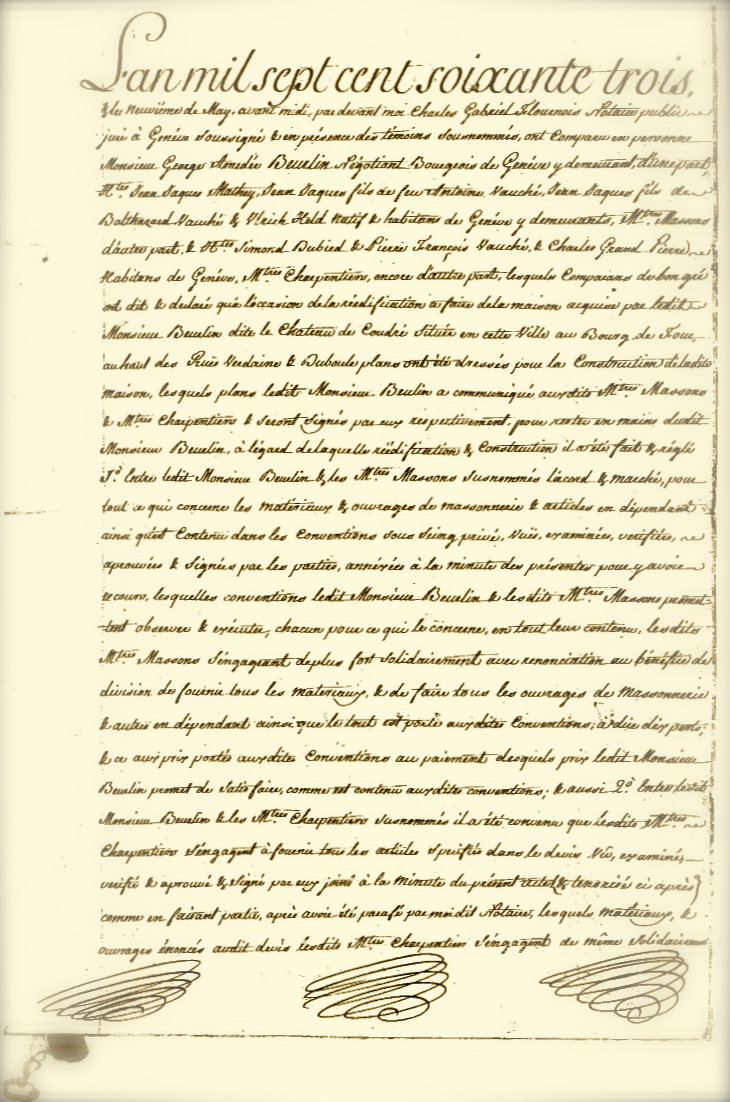 L'an mil sept cent soixante trois,
& le Neuvième de May, avant midi, par devant moi Charles Gabriel Flournois Notaire public
juré à Genève soussigné & en présence des témoins sousnommés, ont Comparu en personne
Monsieur George Amedée Beuelin Négotiant Bourgeois de Genève y demeurant, d'une part,
H.tes Jean Jaques Mathey, Jean Jaques fils de feu Antoine Vauché, Jean Jaques fils de
Balthazard Vauché & Ulrich Held Natif & habitans de Genève y demeurants, M.tres Massons
d'autre part, & H.tes Simond Dubied & Pierre François Vauché, & Charles Grand Pierre
Habitans de Genève, M.tres Charpentiers, encore d'autre part, lesquels Comparans de bon gré
ont dit & declaré que l'occasion de la réédification a faire de la maison acquise par ledit
Monsieur Beuelin dite le Chateau de Coudré Située en cette Ville au Bourg de Four,
au haut des Ruës Verdaine & Duboule plans ont été dressés pour la Construction de ladite
maison, lesquels plans ledit Monsieur Beulin a communiqué auxdits M.tres Massons
& M.tres Charpentiers & seront signés par eux respectivement, pour rester en mains dudit
Monsieur Beuelin, à l'égard de laquelle réédification & Construction il a été fait & réglé
1.º Entre ledit Monsieur Beuelin & les M.tres Massons susnommés l'acord & marché, pour
tout ce qui concerne les materiaux & ouvrages de massonnerie & articles en dépendant
ainsi qu'est Contenu dans les Conventions sous seing privé, Vuës, examinées, verifiées,
aprouvées & Signées par les parties, annéxées à la minute des présentes pour y avoir
recours, lesquelles conventions ledit Monsieur Beuelin & lesdits M.tres Massons promet-
-tent observer & exécuter, chacun pour ce qui le concerne, en tout leur contenu, lesdits
M.tres Massons S'engageant de plus fort solidairement avec renonciation au bénéfice de
division de fournir tous les materiaux, & de faire tous les ouvrages de Massonnerie
& autres en dépendant ainsi que le tout est porté auxdites Conventions, à dire d'experts,
& ce aux prix portés auxdites Conventions au paiement desquels prix ledit Monsieur
Beuelin promet de Satisfaire, comme est contenu auxdites conventions; & aussi 2.º Entre ledit
Monsieur Beuelin & les M.tres Charpentiers susnommés il a été convenu que lesdits M.tres
Charpentiers s'engagent à fournir tous les articles spécifiés dans le devis Vû, examiné,
verifié & aprouvé & signé par eux joint à la minute du présent acte (& tenorisé ci après)
comme en faisant partie, après avoir été parafé par moi dit Notaire, lesquels matériaux, &
ouvrages énoncés audit devis lesdits M.tres Charpentiers s'engagent de même solidairemt